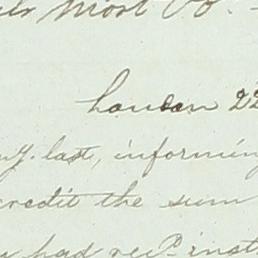 most Ob.
London 22
last, informing
credit the sum
had rec.d inst